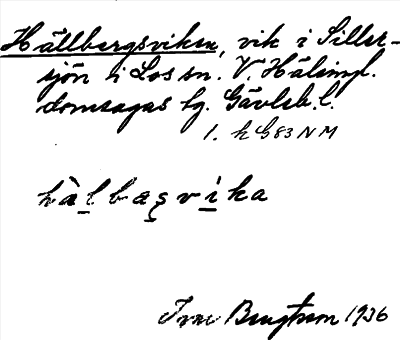 Hällbergsviken, vik i Siller-
sjön i Los sn. V. Hälsingl.
domsagas tg. Gävleb. l.
1. h G83 NM
hàlbaşvika
Bengtson 1936